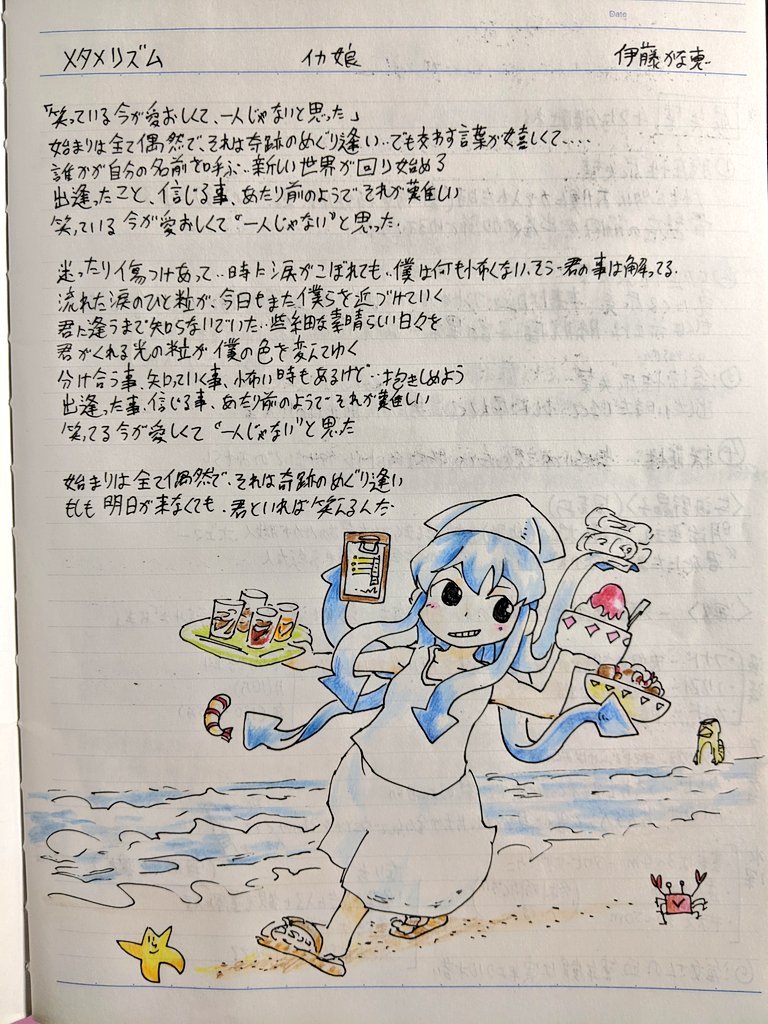 Date
メタメリズム イカ娘 伊藤かな恵
「笑っている今が愛おしくて、一人じゃないと思った」
始まりは全て偶然で、それは奇跡のめぐり逢い‥でも交わす言葉が嬉しくて‥‥
誰かが自分の名前を呼ぶ‥新しい世界が回り始める
出逢ったこと、信じる事、あたり前のようでそれが難しい
笑っている今が愛おしくて“一人じゃない”と思った
迷ったり傷つけあって‥時に涙がこぼれても‥僕は何も怖くない、そう君の事は解ってる
流れた涙のひと粒が、今日もまた僕らを近づけていく
君に逢うまで知らないでいた‥些細な素晴らしい日々を
君がくれる光の粒が僕の色を変えてゆく
分け合う事、知っていく事、怖い時もあるけど‥抱きしめよう
出逢った事、信じる事、あたり前のようでそれが難しい
笑ってる今が愛しくて“一人じゃない”と思った
始まりは全て偶然で、それは奇跡のめぐり逢い
もしも明日が来なくても、君といれば笑えるんだ